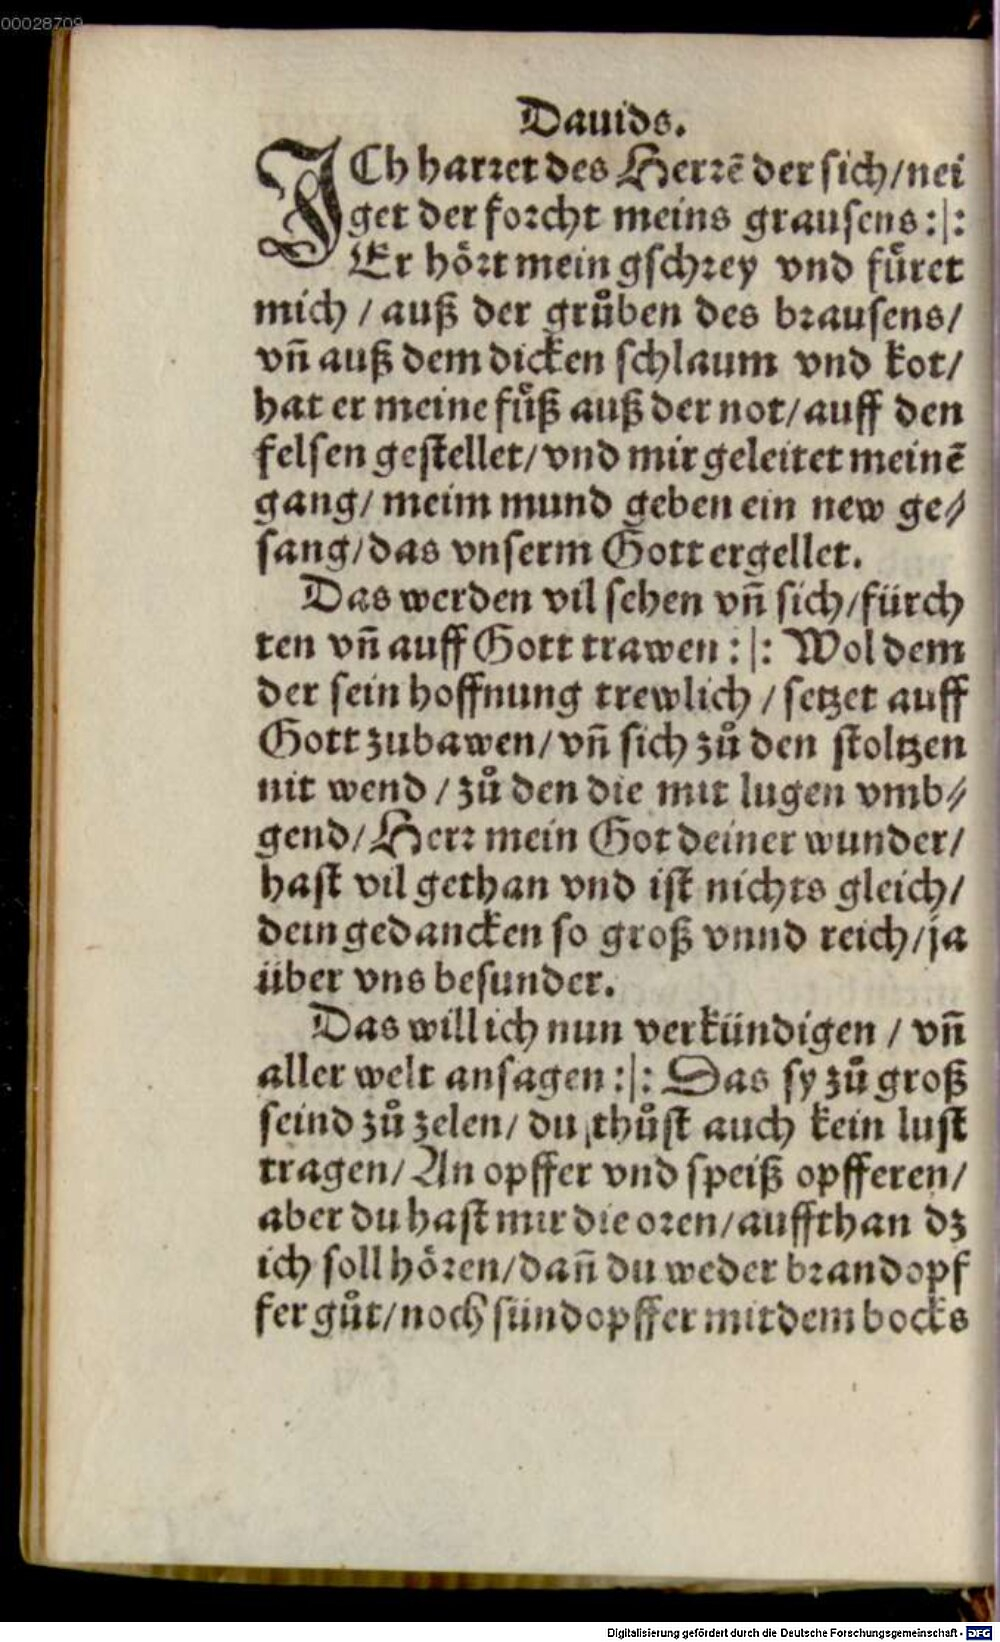 00028709
Dauids.
ICh harret des Herrẽ der sich/nei
get der forcht meins grausens:|:
Er hört mein gschrey vnd fůret
mich / auß der grůben des brausens/
vñ auß dem dicken schlaum vnd kot/
hat er meine fůß auß der not/auff den
felsen gestellet/vnd mir geleitet meinẽ
gang/ meim mund geben ein new ge⸗
sang/das vnserm Gott ergellet.
Das werden vil sehen vñ sich/fürch
ten vñ auff Gott trawen:|: Wol dem
der sein hoffnung trewlich / setzet auff
Gott zubawen/vñ sich zů den stoltzen
nit wend / zů den die mit lugen vmb⸗
gend/Herr mein Got deiner wunder/
hast vil gethan vnd ist nichts gleich/
dein gedancken so groß vnnd reich/ja
über vns besunder.
Das will ich nun verkündigen / vñ
aller welt ansagen:|: Das sy zů groß
seind zů zelen/ du thůst auch kein lust
tragen/An opffer vnd speiß opfferen/
aber du hast mir die oren/auffthan dz
ich soll hören/dañ du weder brandopf
fer gůt/noch sündopffer mit dem bocks
Digitalisierung gefördert durch die Deutsche Forschungsgemeinschaft - DFG